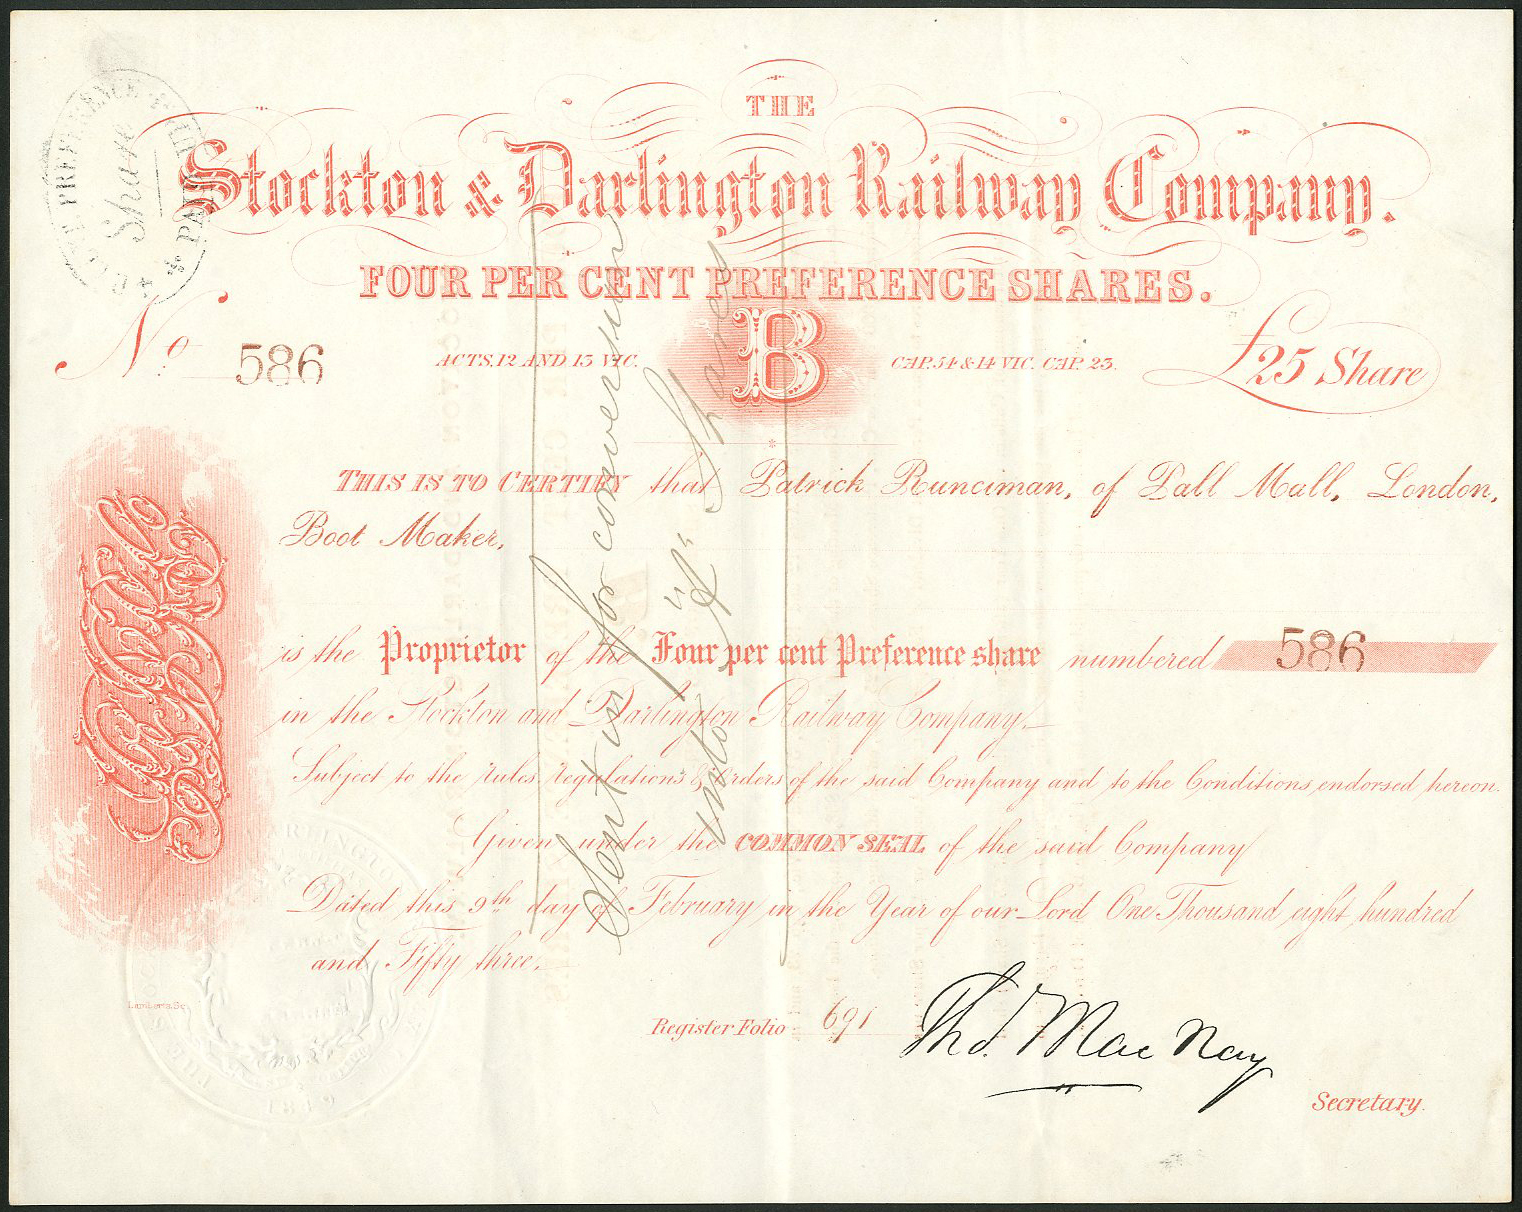 THE
Stockton & Darlington Railway Company.
FOUR PER CENT PREFERENCE SHARES.
PREFERENCE
Share
PAID
No. 586
ACTS, 12 AND 13 VIC. B CAP. 54 & 14 VIC. CAP. 23.
£25 Share
THIS IS TO CERTIFY that Patrick Runciman, of Pall Mall, London,
Boot Maker,
is the Proprietor of the Four per cent Preference share numbered 586
in the Stockton and Darlington Railway Company.
Subject to the rules, regulations & orders of the said Company and to the Conditions, endorsed hereon.
Given under the COMMON SEAL of the said Company
Dated this 9th day of February in the Year of our Lord One Thousand eight hundred
and Fifty three.
Register Folio 691
Thos. MacNay
Secretary.
Sent in for conversion
into "A" Shares
Lambert Sc.
1849